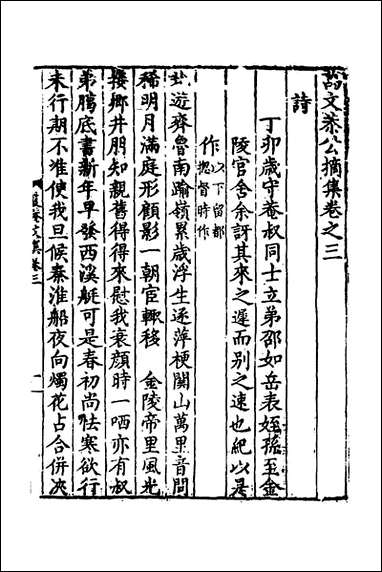 文恭公摘集卷之三
詩
丁卯歲守菴叔同士立弟邵如岳表姪孫至金
陵官舍余訝其來之遲而別之速也紀以是
作 以下留都
總督時作
北遊齊魯南踰嶺累歲浮生逐萍梗關山萬里音問
稀明月滿庭形顧影一朝宦轍移 金陵帝里風光
接鄉井朋知親舊得得來慰我衰顏時一哂亦有叔
弟臈底書新年早發西溪艇可是春初尚怯寒欲行
未行期不准使我旦候秦淮船夜向燭花占合併決
菴文集卷三 二